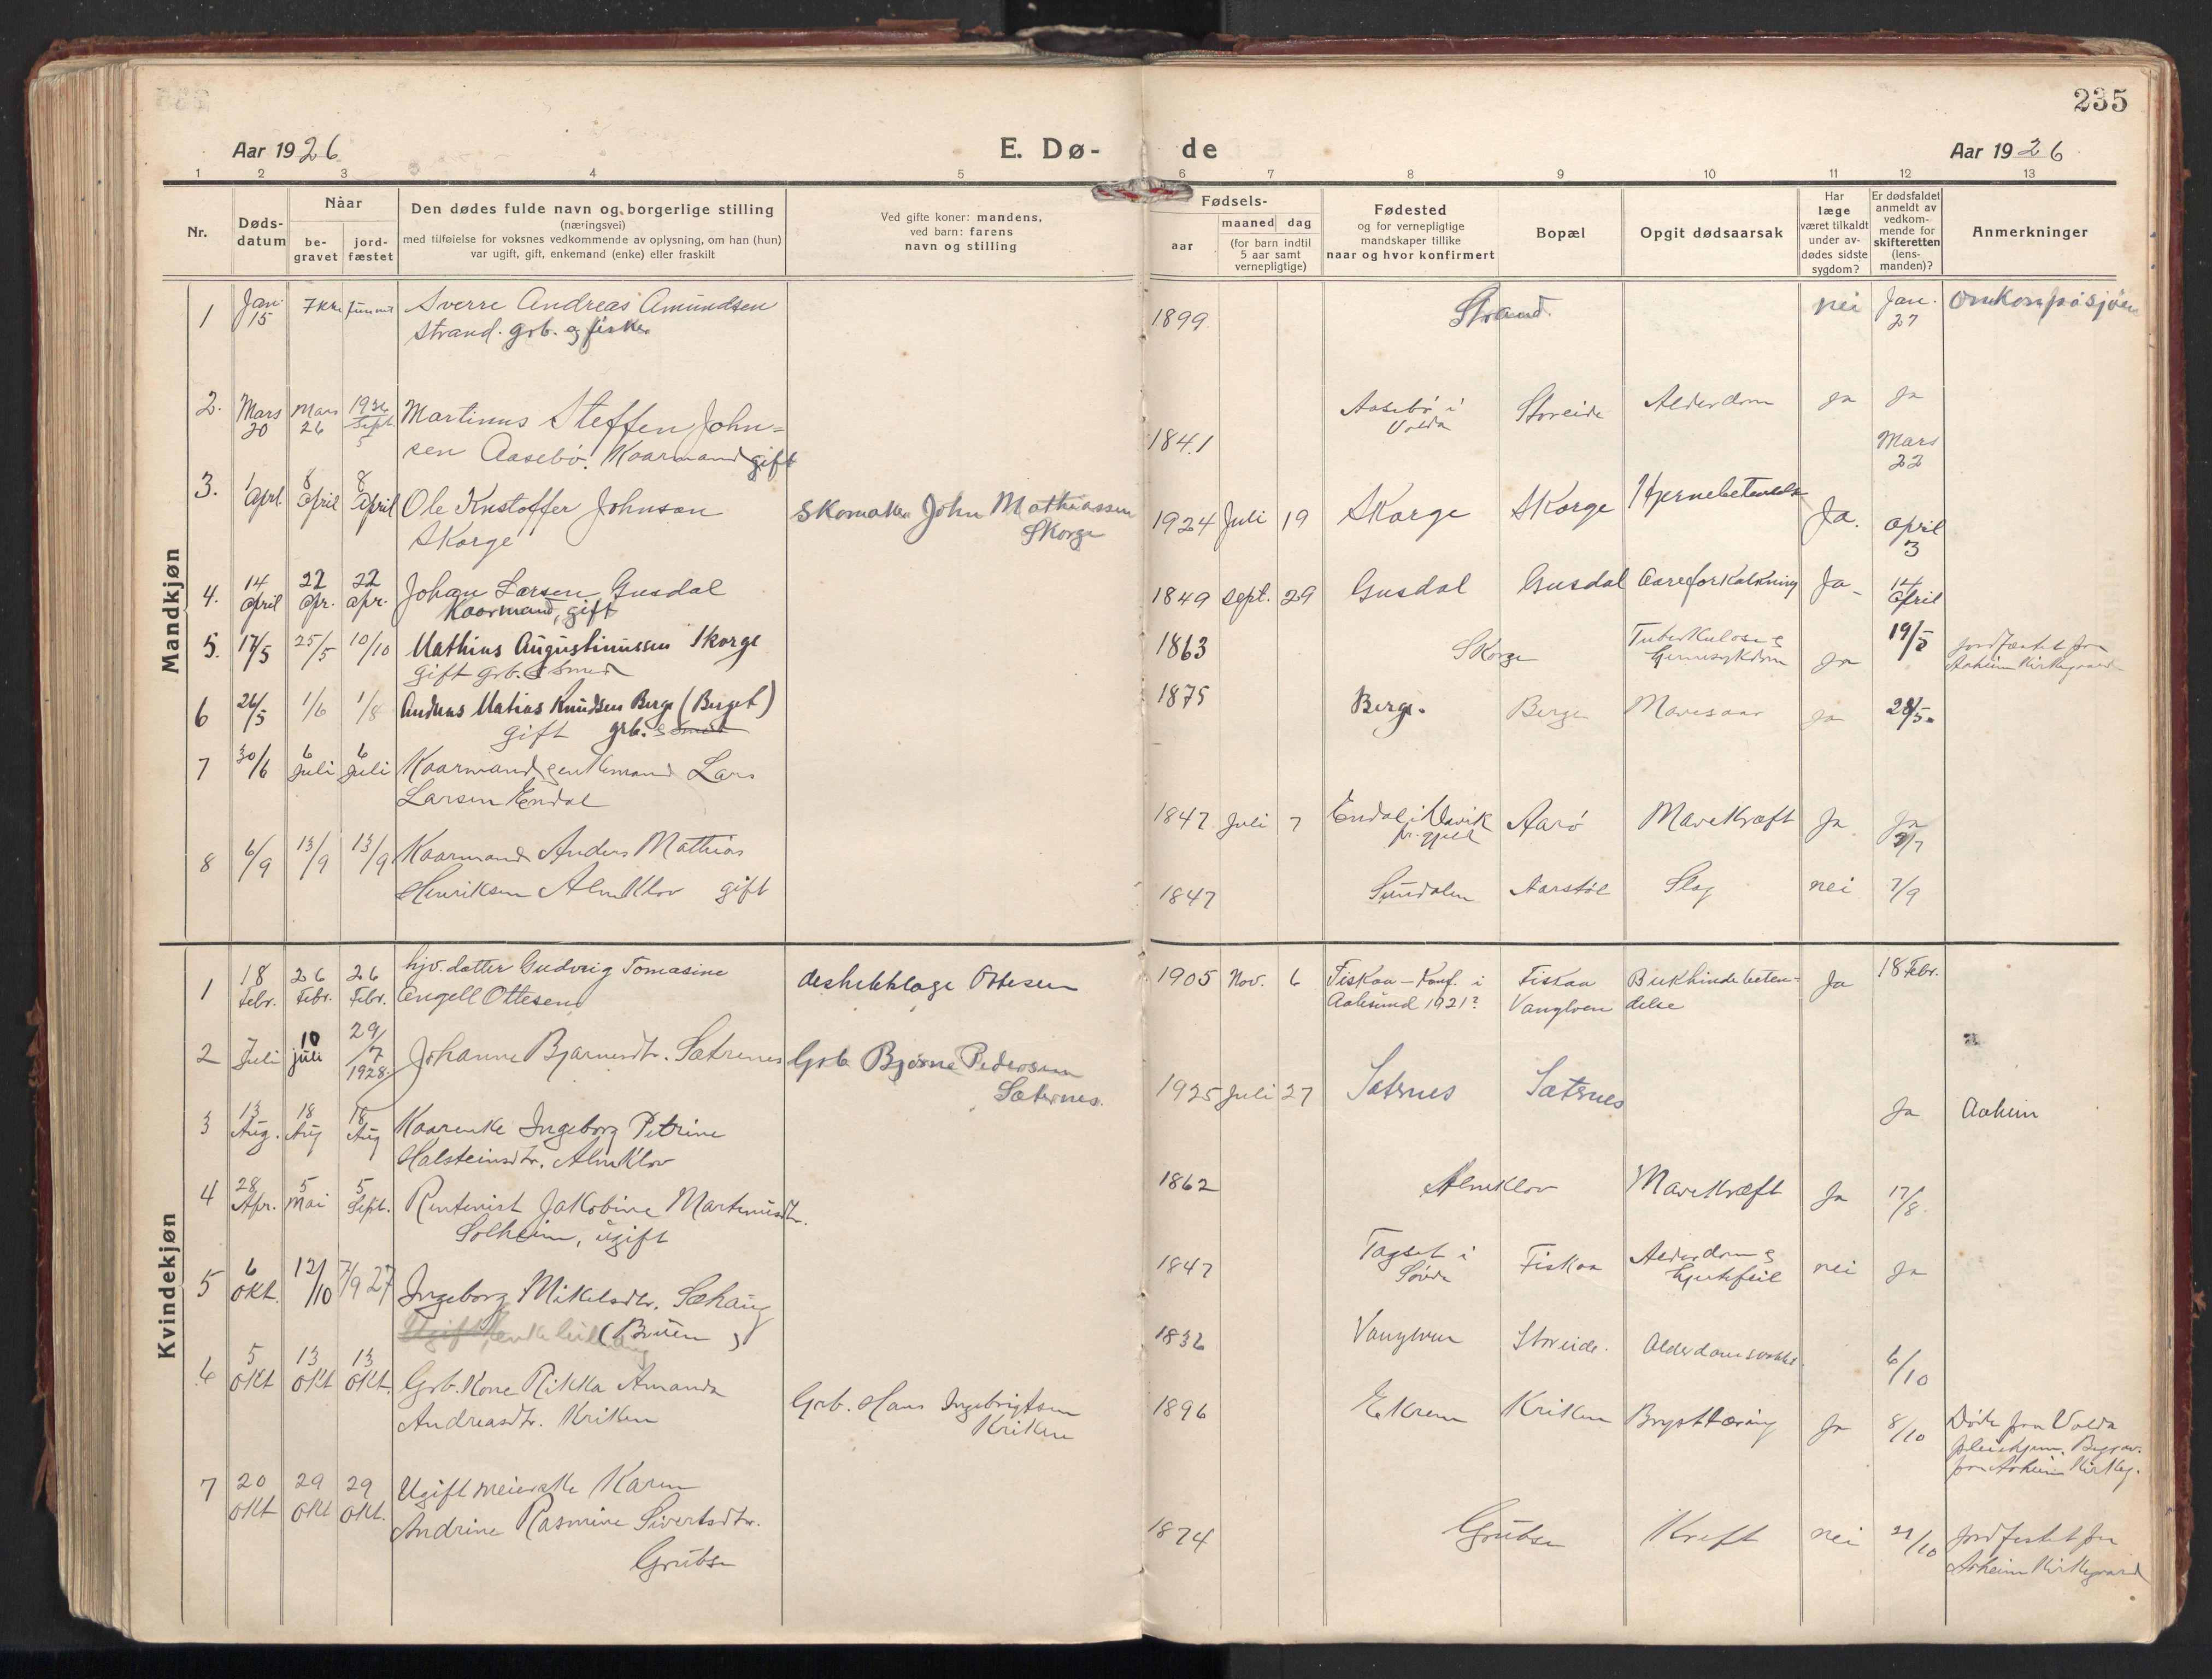 235
Aar 1926
E. Dø-
de
Aar 1926
1 2 3 4 5 6 7 8 9 10 11 12 13
Nr.
Døds-
datum
Naar
be-
gravet
jord-
fæstet
Den dødes fulde navn og borgerlige stilling
(næringsvei)
med tilføielse for voksnes vedkommende av oplysning, om han (hun)
var ugift, gift, enkemand (enke) eller fraskilt
Ved gifte koner: mandens,
ved barn: farens
navn og stilling
Fødsels-
aar
maaned dag
(for barn indtil
5 aar samt
vernepligtige)
Fødested
og for vernepligtige
mandskaper tillike
naar og hvor konfirmert
Bopæl
Opgit dødsaarsak
Har
læge
været tilkaldt
under av-
dødes sidste
sygdom?
Er dødsfaldet
anmeldt av
vedkom-
mende for
skifteretten
(lens-
manden)?
Anmerkninger
Mandkjøn
1 Jan. 15 Sverre Andreas Amundsen 1899 Strand. nei Jan. 27 Omkom på sjøen
Strand. grb. og fisker
2. Mars 20 Mars 26 Martinus Steffen John= 1841 Aasebø i Volda Storeide Alderdom ja ja Mars 22
sen Aasebø. Kaarmand gift
3. 1 April 8 April 8 April Ole Kristoffer Johnsen Skomaker John Mathiassen 1924 Juli 19 Skorge Skorge Ja. April 3
Skorge Skorge
4. 14 April 22 Apr. 22 Apr. Johan Larsen Gusdal 1849 Sept. 29 Gusdal Gusdal Aareforkalkning Ja April
Kaarmand, gift
5. 17/5 25/5 10/10 Mathias Augustinussen Skorge 1863 Skorge Tuberkulose & ja 19/5 Jordfæstet fra
gift grb. & smed Aaheim Kirkegaard
6 26/5 1/6 1/8 Anders Matias Knudsen Berge (Berget) 1875 Berge. Berge Mavesaar ja 28/5.
gift grb. & smed
7 30/6 6 Juli 6 Juli Kaarmand enkemand Lars 1847 Juli 7 Endal i Davik Aarø Mavekræft Ja Ja
Larsen Endal pr.gjeld
8 6/9 13/9 13/9 Kaarmand Anders Mathias 1847 Sundalen Aarstøl Slag nei 7/9
Henriksen Almklov gift
Kvindekjøn
1 18 Febr. 26 Febr. 26 Febr. hjv. datter Gudveig Tomasine Ottesen 1905 Nov. 6 Fiskaa – Konf. i Fiskaa Bukhindebeten- Ja 18 Febr.
Angell Ottesen Aalesund 1921? Vanylven delse
2 7 Juli 10 juli 29/7 1928 Johanne Bjarnesdtr. Sætrenes Grb Bjarne Pedersen 1925 Juli 27 Sætrnes Sætrnes Ja Aaheim
Sæternes.
3 13 Aug. 18 Aug 18 Aug Kaarenke Ingeborg Petrine 1862 Almklov Mavekræft Ja 17/8
Halsteinsdtr. Almklov
4 28 Apr. 5 Mai 5 Sept. Rentenist Jakobine Martinusdtr. 1847 Fiskaa Alderdom & nei Ja
Solheim, ugift Hjertefeil
5 6 Okt. 12/10 7/9 27 Ingeborg Mikelsdtr. Sæhaug 1832 Vanylven Storeide. 6/10
6 5 Okt 13 Okt 13 Okt. Grb. Kone Rikka Amanda Grb. Hans Ingebrigtsen 1896 Ekrem Kriken Brysttæring Ja 8/10 Døde paa Volda
Andreasdtr. Kriken Kriken pleiehjem. Begrav.
paa Aaheim Kirkeg.
7 20 Okt 29 Okt 29 Okt. Ugift meierske Karen 1874 Grubse Kreft nei 21/10 Jordfestet fra
Andrine Rasmine Sivertsdtr. Aaheim Kirkegaard
Grubse